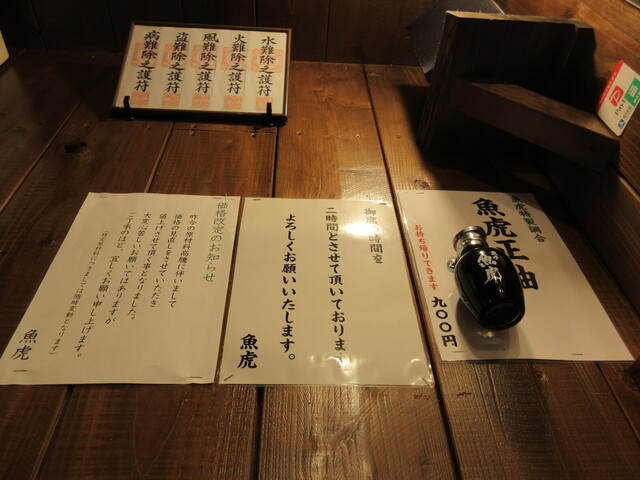 水難除之護符
火難除之護符
風難除之護符
盗難除之護符
病難除之護符
魚虎特製調合
魚虎正油
お持ち帰りできます
九〇〇円
魚虎
御席時間を
二時間とさせて頂いております
よろしくお願いいたします。
魚虎
価格改定のお知らせ
昨今の原材料高騰に伴いまして
価格の見直しをさせていただき
値上げさせて頂く事となりました。
大変心苦しいお願いではありますが
ご了承のほど、宜しくお願い申し上げます。
魚虎